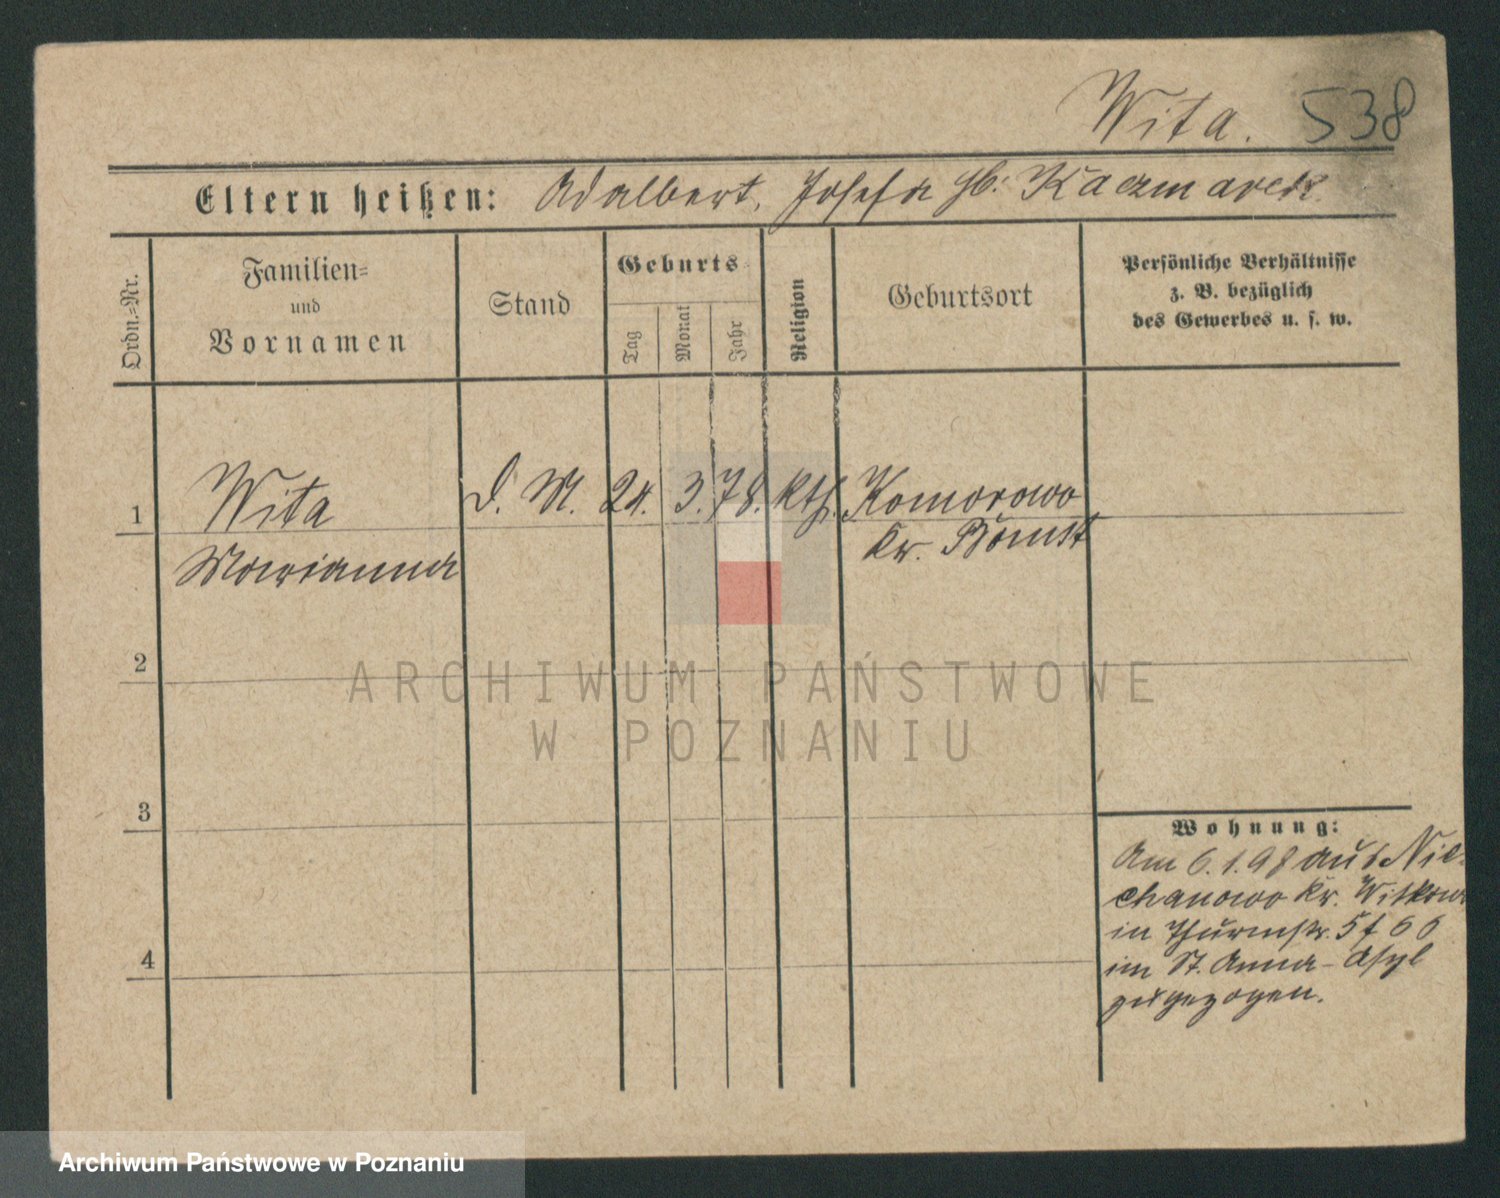 Wita. 538
Eltern heißen: Adalbert, Josefa gb. Kaczmarek
Ordn.=Nr.
Familien=
und
Vornamen
Stand
Geburts
Tag
Monat
Jahr
Religion
Geburtsort
Persönliche Verhältnisse
z. B. bezüglich
des Gewerbes u. s. w.
1 Wita D. M. 24. 3. 78. kth. Komorowo
Marianna Kr. Bomst
2
3
4
Wohnung:
Am 6.1.98 aus Nie-
chanowo Kr. Witkowo
in Thurmstr. 5
im St. Anna-Asyl
zugezogen.
ARCHIWUM PAŃSTWOWE
W POZNANIU
Archiwum Państwowe w Poznaniu